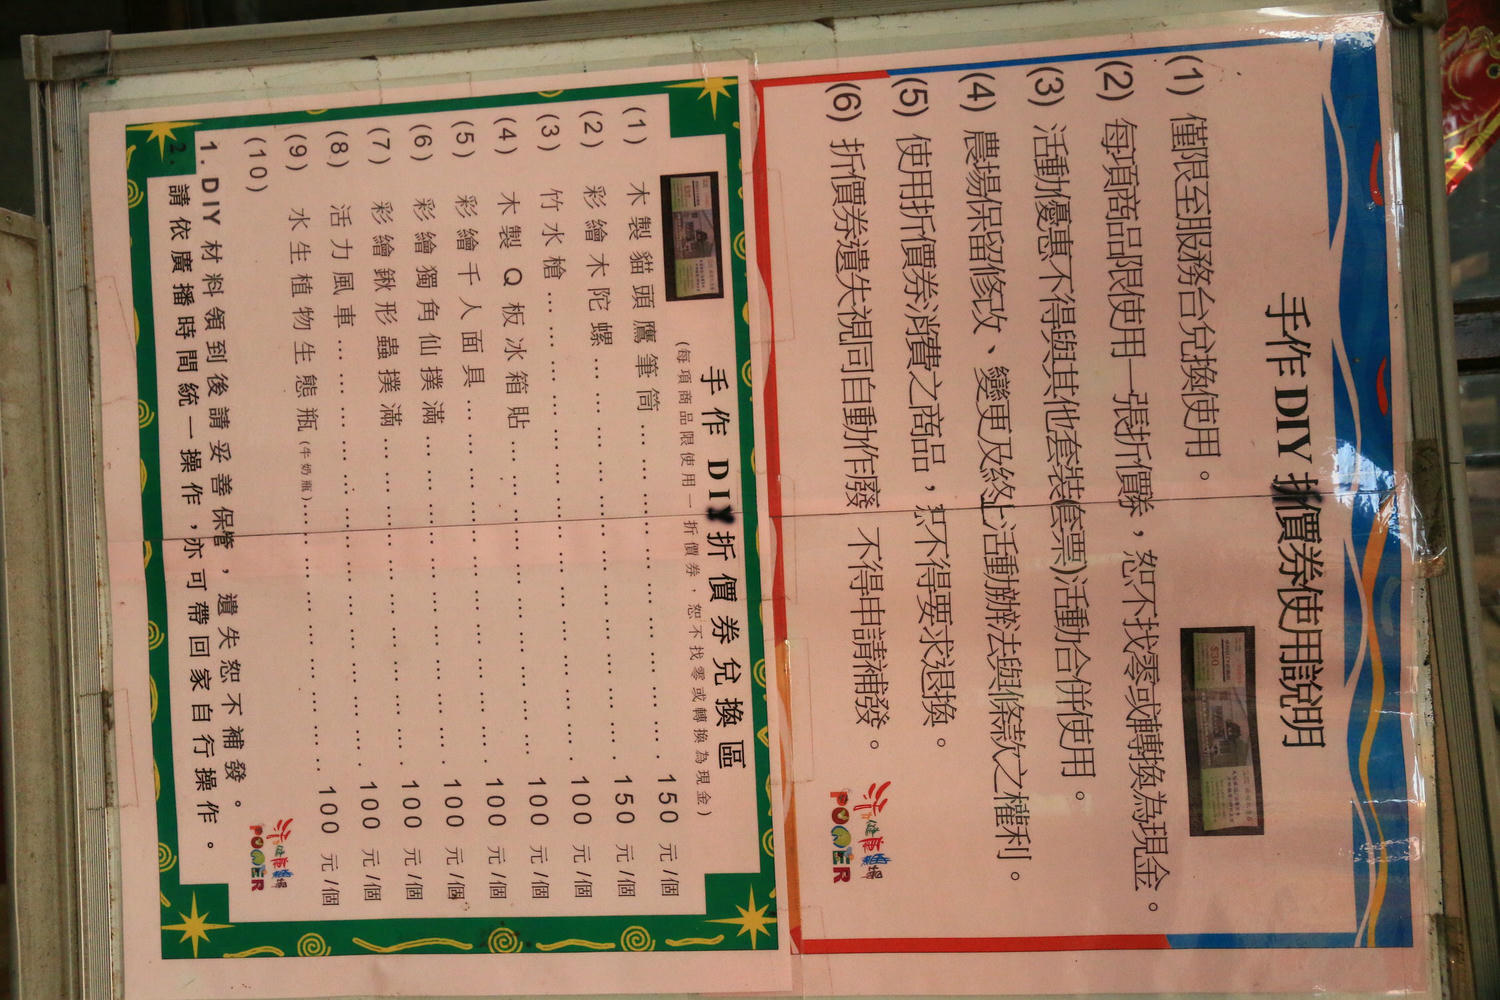 手作 DIY 折價券使用說明
$30
(1) 僅限至服務台兌換使用。
(2) 每項商品限使用一張折價券，恕不找零或轉換為現金。
(3) 活動優惠不得與其他套裝(套票)活動合併使用。
(4) 農場保留修改、變更及終止活動辦法與條款之權利。
(5) 使用折價券消費之商品，恕不得要求退換。
(6) 折價券遺失視同自動作廢 不得申請補發。
POWER
手作 DIY 折價券兌換區
(每項商品限使用一折價券，恕不找零或轉換為現金)
(1) 木製貓頭鷹筆筒………………………150 元/個
(2) 彩繪木陀螺………………………150 元/個
(3) 竹水槍………………………100 元/個
(4) 木製 Q 板冰箱貼………………………100 元/個
(5) 彩繪千人面具………………………100 元/個
(6) 彩繪獨角仙撲滿………………………100 元/個
(7) 彩繪鍬形蟲撲滿………………………100 元/個
(8) 活力風車………………………100 元/個
(9) 水生植物生態瓶(牛奶瓶)………………………100 元/個
(10)
1. DIY 材料領到後請妥善保管，遺失恕不補發。
2. 請依廣播時間統一操作，亦可帶回家自行操作。
POWER